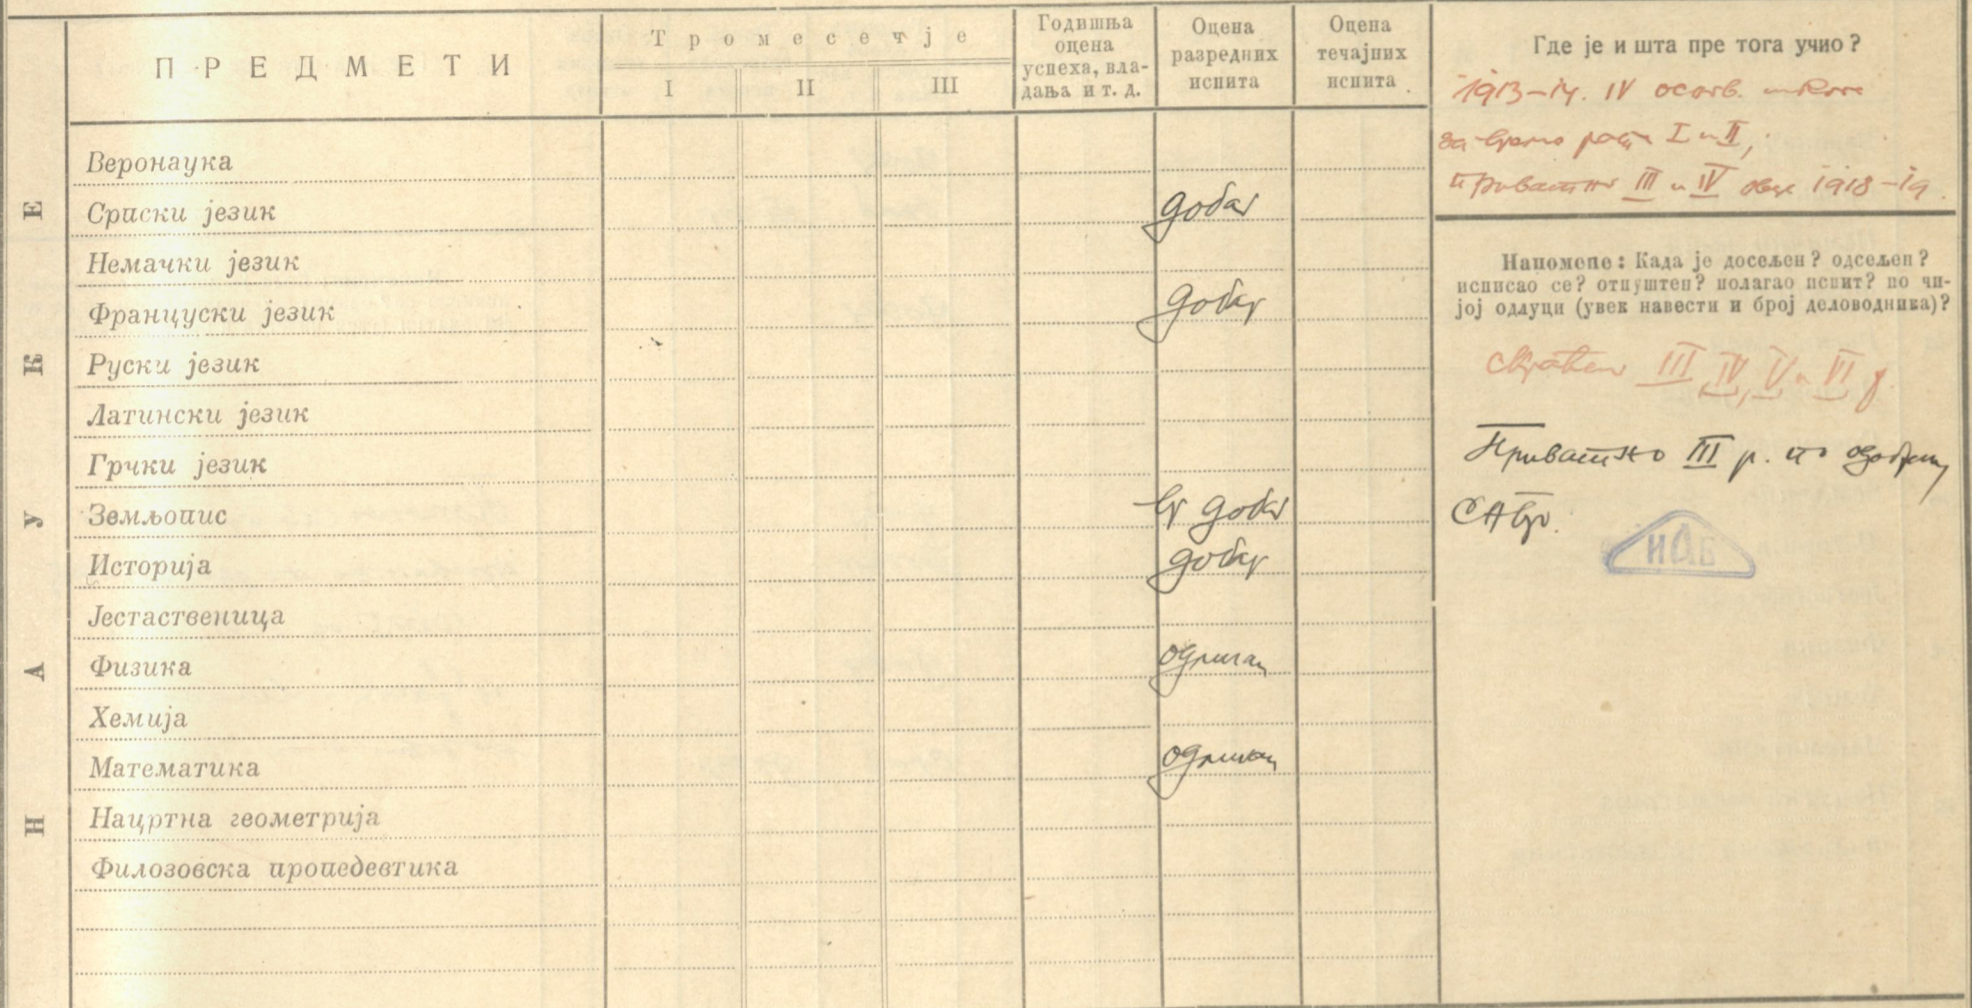 ПРЕДМЕТИ
Тромесечје
I II III
Годишња
оцена
успеха, вла-
дања и т. д.
Оцена
разредних
испита
Оцена
течајних
испита
НАУКЕ
Веронаука
Српски језик добар
Немачки језик
Француски језик добар
Руски језик
Латински језик
Грчки језик
Земљопис вр добар
Историја добар
Јестаственица
Физика одличан
Хемија
Математика одличан
Нацртна геометрија
Филозовска пропедевтика
Где је и шта пре тога учио?
1913-14. IV основ. школе
за време рата I и II,
Приватно III и IV овде 1918-19.
Напомене: Када је досељен? одсељен?
исписао се? отпуштен? полагао испит? по чи-
јој одлуци (увек навести и број деловодника)?
III, IV, V и VI р.
Приватно III р. по
ИАБ